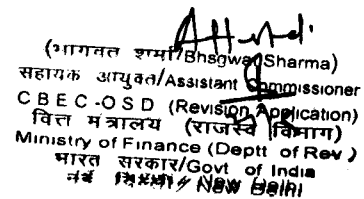 Attested
(भागवत शर्मा/Bhagwat Sharma)
सहायक आयुक्त/Assistant Commissioner
CBEC-OSD (Revision Application)
वित्त मंत्रालय (राजस्व विभाग)
Ministry of Finance (Deptt of Rev)
भारत सरकार/Govt of India
नई दिल्ली / New Delhi